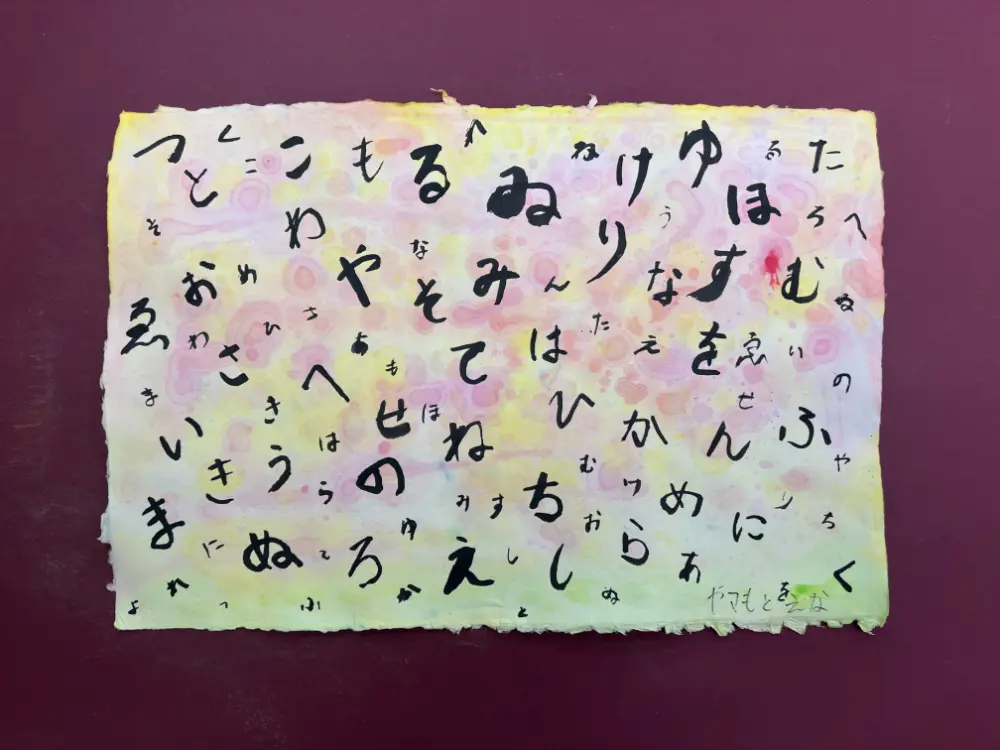 つ く こ こ も る れ ゐ ね け ゆ る た
と そ わ な り う ほ ろ へ
お め や そ み ん な す む ぬ
ゑ わ ひ さ あ て は た え を ゑ い
ま さ き へ も ひ せ の
い き は せ ほ ね か ん ふ や
う ら の み す ち む け め り ち
ま に ぬ て ろ ゆ え し し お ら あ に く
よ れ つ ふ か と ぬ を
やマもと えな